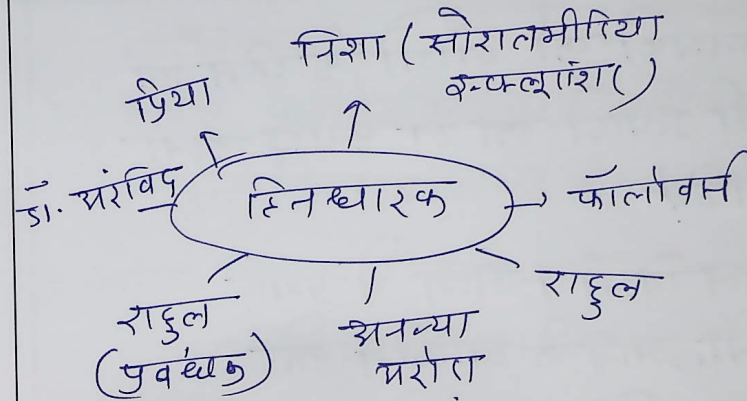 निशा (सोशलमीडिया
इन्फ्लूएंशर)
प्रिया
डॉ. अरविंद
हितधारक
फॉलोवर्स
राहुल
राहुल
(प्रबंधक)
अनन्या
अरोरा